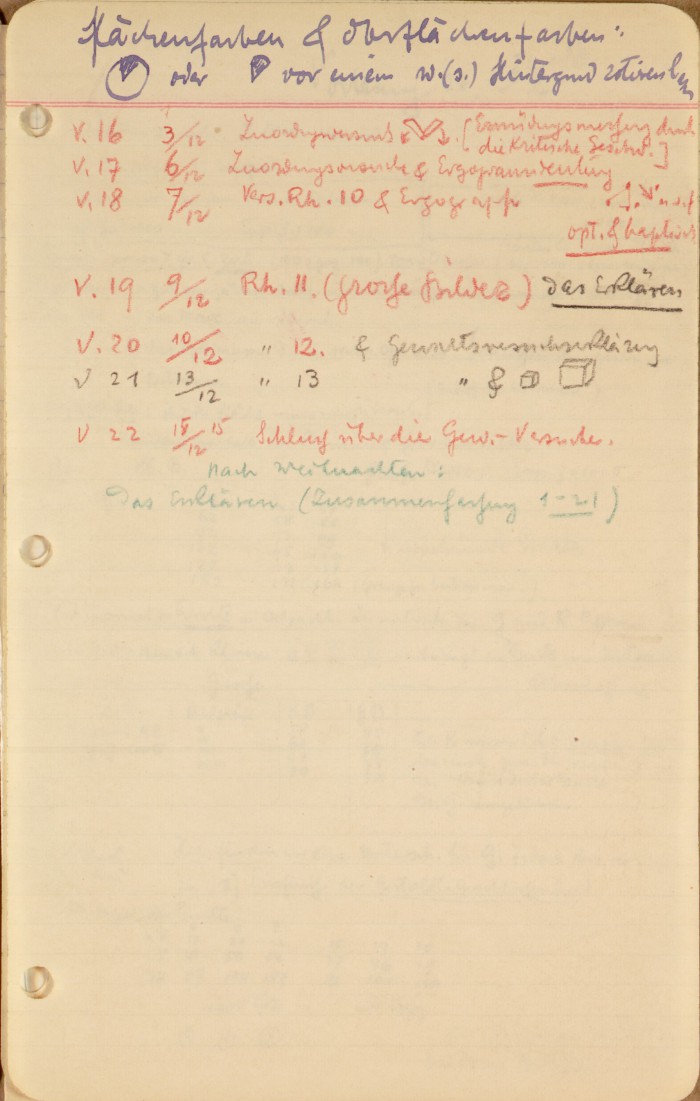 Flächenfarben & Oberflächenfarben:
oder vor einem w.(s.) Hintergrund rotieren
V. 16 3/12 Zuordnungsversuch [Ermüdungsmessung durch
die Kritische Geschw.]
V. 17 6/12 Zuordnungsversuche & Ergogrammdeutung
V. 18 7/12 Vers. Rh. 10 & Ergograph u.s.f
opt. & haptisch
V. 19 9/12 Rh. 11. (große Bilder) das Erklären
V. 20 10/12 " 12. & Gewichtsversuchserklärung
V 21 13/12 " 13 " &
V 22 15/12 Schluß über die Gew.-Versuche.
Nach Weihnachten:
Das Erklären (Zusammenfassung 1-21)